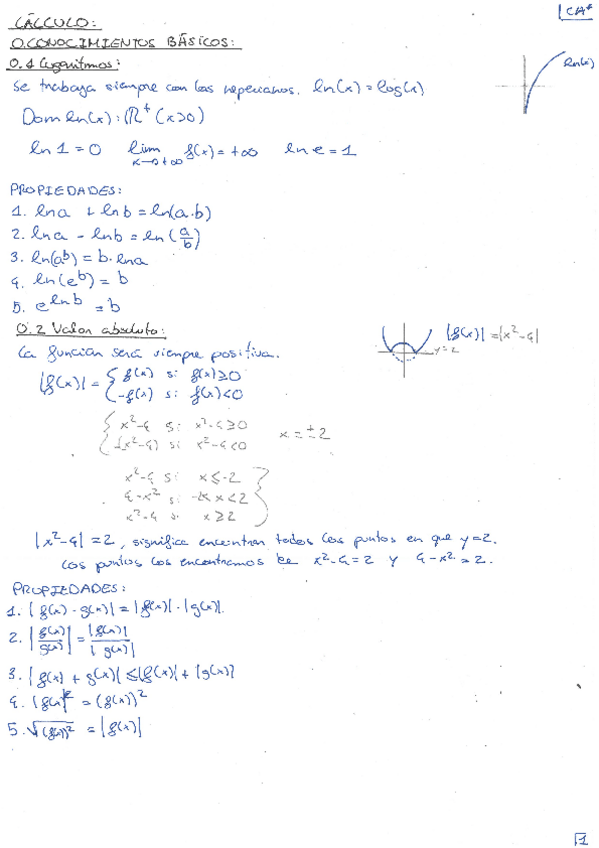 CA*
CÁLCULO:
0. CONOCIMIENTOS BÁSICOS:
0.1 Logaritmos:
Se trabaja siempre con los neperianos. ln(x) = log(x)
ln(x)
Dom ln(x): ℝ⁺ (x>0)
ln 1 = 0 lim x→+∞ f(x) = +∞ ln e = 1
PROPIEDADES:
1. ln a + ln b = ln(a·b)
2. ln a - ln b = ln(a/b)
3. ln(aᵇ) = b·ln a
4. ln(eᵇ) = b
5. e^(ln b) = b
0.2 Valor absoluto:
La función será siempre positiva.
|f(x)| = |x²-4|
y=2
|f(x)| = { f(x) si: f(x)≥0
-f(x) si: f(x)<0
{ x²-4 si: x²-4≥0
-(x²-4) si: x²-4<0 x = ±2
x²-4 si: x≤-2
4-x² si: -2<x<2
x²-4 si: x≥2 }
|x²-4| = 2, significa encontrar todos los puntos en que y=2.
Los puntos los encontramos x²-4=2 y 4-x²=2.
PROPIEDADES:
1. |f(x)·g(x)| = |f(x)|·|g(x)|.
2. |f(x)/g(x)| = |f(x)|/|g(x)|
3. |f(x) + g(x)| ≤ |f(x)| + |g(x)|
4. |f(x)|² = (f(x))²
5. √(f(x))² = |f(x)|
1